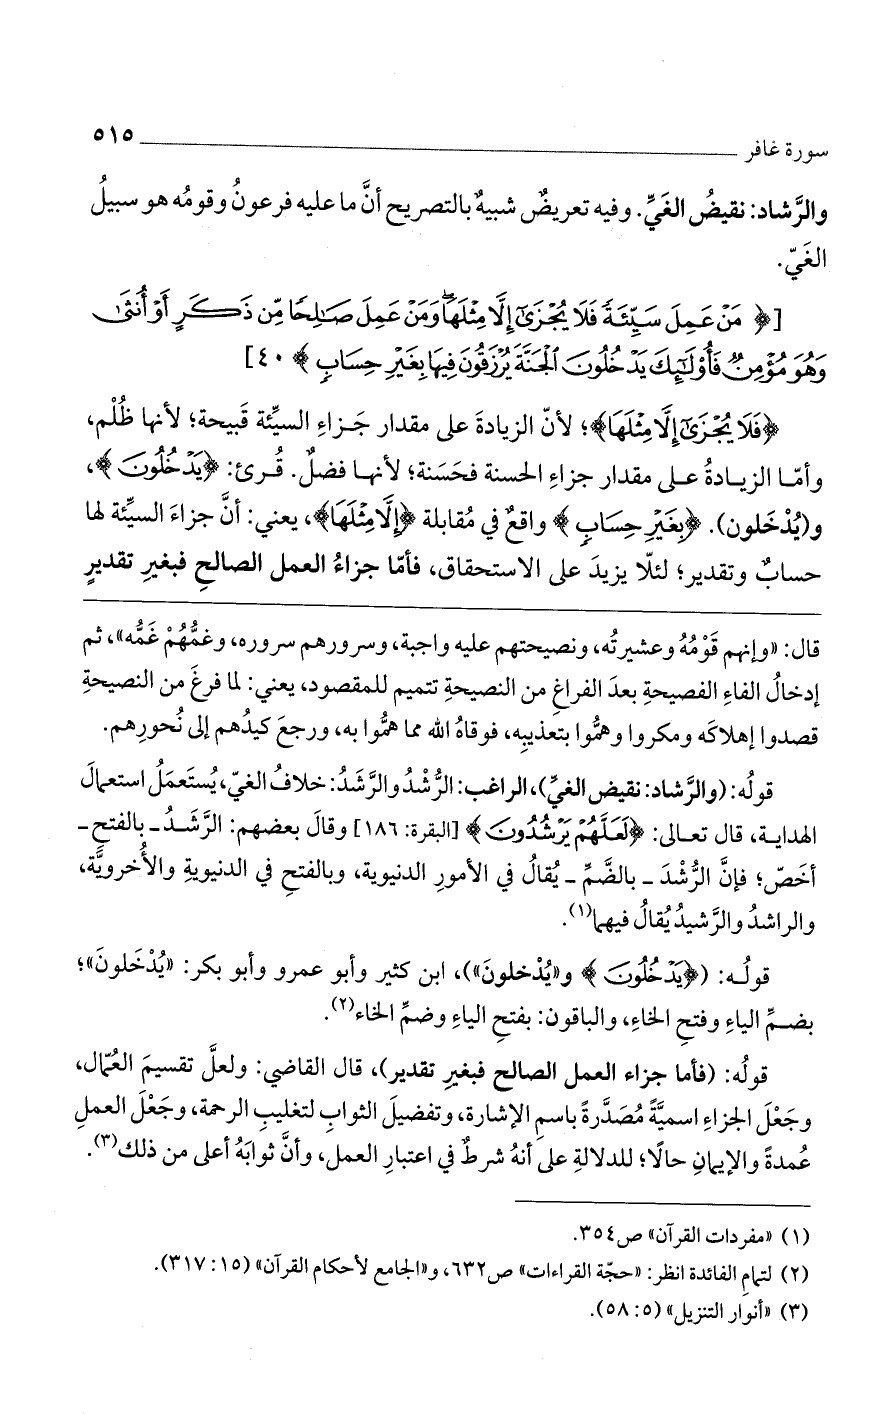 سورة غافر ٥١٥
والرَّشاد: نقيضُ الغَيِّ. وفيه تعريضٌ شبيهٌ بالتصريح أنَّ ما عليه فرعونُ وقومُه هو سبيلُ
الغَيّ.
[﴿مَنْ عَمِلَ سَيِّئَةً فَلَا يُجْزَىٰ إِلَّا مِثْلَهَا ۖ وَمَنْ عَمِلَ صَالِحًا مِّن ذَكَرٍ أَوْ أُنثَىٰ
وَهُوَ مُؤْمِنٌ فَأُوْلَٰئِكَ يَدْخُلُونَ الْجَنَّةَ يُرْزَقُونَ فِيهَا بِغَيْرِ حِسَابٍ﴾ ٤٠]
﴿فَلَا يُجْزَىٰ إِلَّا مِثْلَهَا﴾؛ لأنّ الزيادةَ على مقدار جَزاءِ السيِّئة قَبيحة؛ لأنها ظُلْم،
وأمّا الزيادةُ على مقدار جزاءِ الحسنة فحَسَنة؛ لأنها فضلٌ. قُرئ: ﴿يَدْخُلُونَ﴾،
و(يُدْخَلون). ﴿بِغَيْرِ حِسَابٍ﴾ واقعٌ في مُقابلة ﴿إِلَّا مِثْلَهَا﴾، يعني: أنَّ جزاءَ السيِّئة لها
حسابٌ وتقدير؛ لئلّا يزيدَ على الاستحقاق، فأمّا جزاءُ العمل الصالحِ فبغيرِ تقديرٍ
قال: «وإنهم قَوْمُهُ وعشيرتُه، ونصيحتهم عليه واجبة، وسرورهم سروره، وغمُّهُمْ غَمُّه»، ثم
إدخالُ الفاءِ الفصيحةِ بعدَ الفراغِ من النصيحةِ تتميم للمقصود، يعني: لما فرغَ من النصيحةِ
قصدوا إهلاكَه ومكروا وهمُّوا بتعذيبِه، فوقاهُ الله مما همُّوا به، ورجعَ كيدُهم إلى نُحورِهم.
قولُه: (والرَّشاد: نقيض الغيِّ)، الراغب: الرُّشْدُ والرَّشَدُ: خلافُ الغيّ، يُستَعمَلُ استعمالَ
الهداية، قال تعالى: ﴿لَعَلَّهُمْ يَرْشُدُونَ﴾ [البقرة: ١٨٦] وقالَ بعضهم: الرَّشَدُ ـ بالفتحِ ـ
أخصّ؛ فإنَّ الرُّشْدَ ـ بالضَّمِّ ـ يُقالُ في الأمورِ الدنيوية، وبالفتحِ في الدنيويةِ والأُخرويَّة،
والراشدُ والرَّشيدُ يُقالُ فيهما(١).
قولُه: (﴿يَدْخُلُونَ﴾ و«يُدْخلونَ»)، ابن كثير وأبو عمرو وأبو بكر: «يُدْخَلونَ»؛
بضمِّ الياءِ وفتحِ الخاءِ، والباقون: بفتحِ الياءِ وضمِّ الخاء(٢).
قولُه: (فأما جزاء العمل الصالح فبغيرِ تقدير)، قال القاضي: ولعلَّ تقسيمَ العُمّال،
وجَعْلَ الجزاءِ اسميَّةً مُصَدَّرةً باسمِ الإشارة، وتفضيلَ الثوابِ لتغليبِ الرحمة، وجَعْلَ العملِ
عُمدةً والإيمانِ حالًا؛ للدلالةِ على أنهُ شرطٌ في اعتبارِ العمل، وأنَّ ثوابَهُ أعلى من ذلك(٣).
(١) «مفردات القرآن» ص٣٥٤.
(٢) لتمامِ الفائدة انظر: «حجّة القراءات» ص٦٣٢، و«الجامع لأحكام القرآن» (١٥: ٣١٧).
(٣) «أنوار التنزيل» (٥: ٥٨).